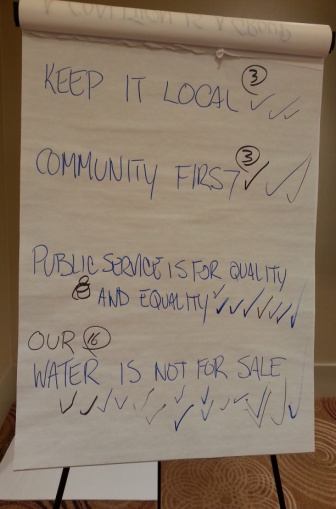 KEEP IT LOCAL ③ ✓ ✓ ✓
COMMUNITY FIRST ③ ✓ ✓ ✓
PUBLIC SERVICE IS FOR QUALITY
AND EQUALITY ✓ ✓ ✓ ✓ ✓ ✓ ✓ ✓
OUR ⑯
WATER IS NOT FOR SALE